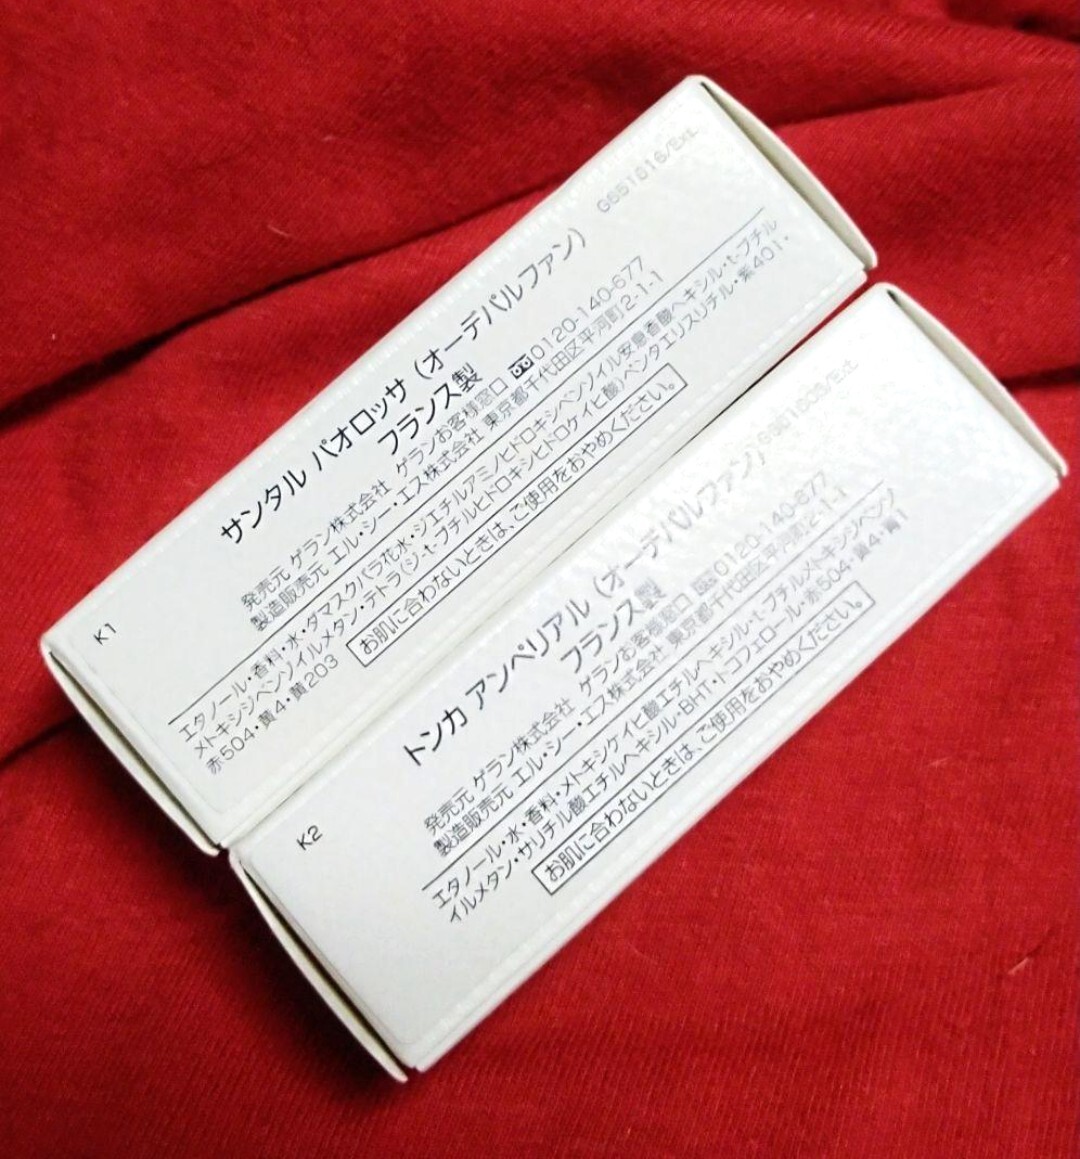 サンタル パオロッサ (オーデパルファン)
フランス製
発売元 ゲラン株式会社 ゲランお客様窓口 0120-140-677
製造販売元 エル・シー・エス株式会社 東京都千代田区平河町2-1-1
エタノール・香料・水・ダマスクバラ花水・ジエチルアミノヒドロキシベンゾイル安息香酸ヘキシル・t-ブチル
メトキシジベンゾイルメタン・テトラ(ジ-t-ブチルヒドロキシヒドロケイヒ酸)ペンタエリスリチル・紫401・
赤504・黄4・黄203
お肌に合わないときは、ご使用をおやめください。
K1
トンカ アンペリアル (オーデパルファン)
フランス製
発売元 ゲラン株式会社 ゲランお客様窓口 0120-140-677
製造販売元 エル・シー・エス株式会社 東京都千代田区平河町2-1-1
エタノール・水・香料・メトキシケイヒ酸エチルヘキシル・t-ブチルメトキシジベンゾ
イルメタン・サリチル酸エチルヘキシル・BHT・トコフェロール・赤504・黄4・青1
お肌に合わないときは、ご使用をおやめください。
K2